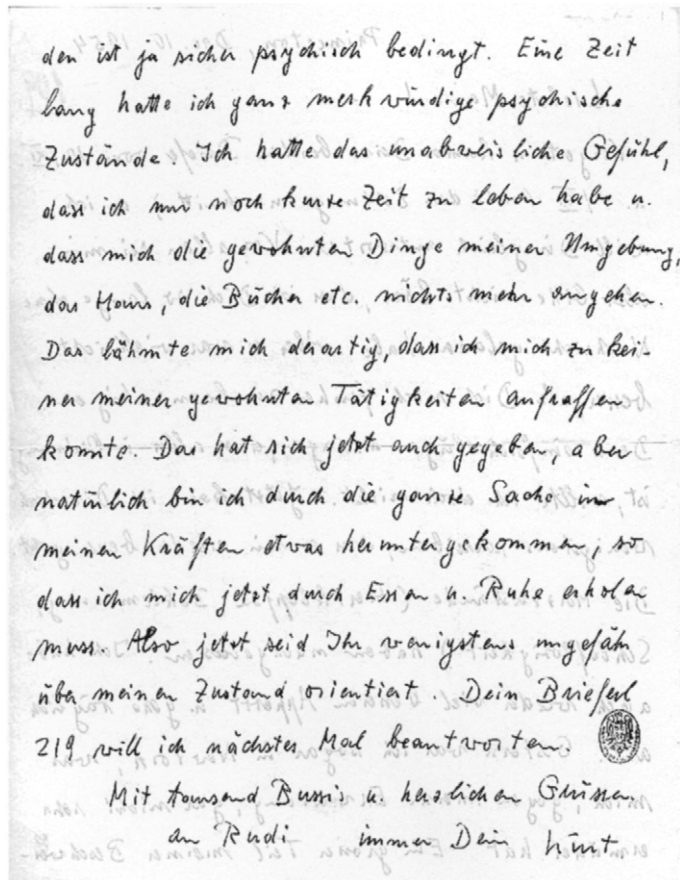 den ist ja sicher psychisch bedingt. Eine Zeit
lang hatte ich ganz merkwürdige psychische
Zustände. Ich hatte das unabweisliche Gefühl,
dass ich nur noch kurze Zeit zu leben habe u.
dass mich die gewohnten Dinge meiner Umgebung,
das Haus, die Bücher etc. nichts mehr angehen.
Das lähmte mich derartig, dass ich mich zu kei-
ner meiner gewohnten Tätigkeiten aufraffen
konnte. Das hat sich jetzt auch gegeben, aber
natürlich bin ich durch die ganze Sache in
meinen Kräften etwas heruntergekommen, so
dass ich mich jetzt durch Essen u. Ruhe erholen
muss. Also jetzt seid Ihr wenigstens ungefähr
über meinen Zustand orientiert. Dein Brieferl
219 will ich nächstes Mal beantworten.
Mit tausend Bussis u. herzlichen Grüssen
an Rudi immer Dein Kurt